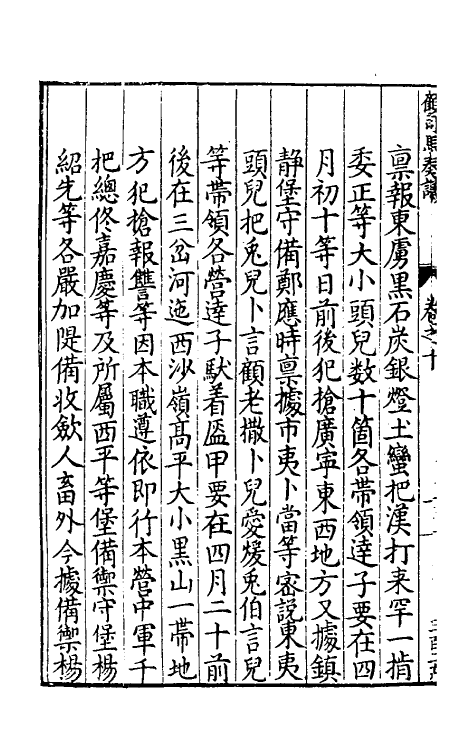 稟報東虜黑石炭銀燈土蠻把漢打来罕一揹
委正等大小頭兒數十箇各帶領逹子要在四
月初十等日前後犯搶廣寧東西地方又據鎮
静堡守備鄭應時稟據市夷卜當等宻說東夷
頭兒把兎兒卜言顧老撒卜兒愛煖兎伯言兒
等帶領各營逹子馱着盔甲要在四月二十前
後在三岔河迤西沙嶺高平大小黒山一帶地
方犯搶報讐等因本職遵依即行本營中軍千
把總佟嘉慶等及所屬西平等堡備禦守堡楊
紹先等各嚴加隄備收歛人畜外今據備禦楊
卷之十